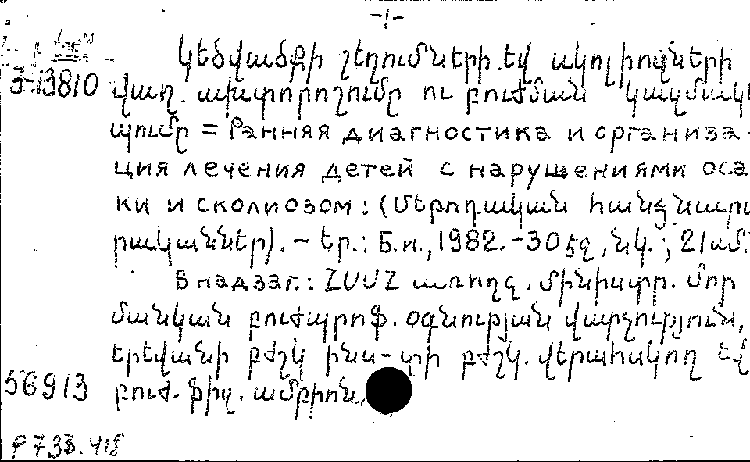 -1-
Կեցվածքի շեղումների և սկոլիոզների
3-13810 վաղ. ախտորոշումը ու բուժման կազմակեր
պումը = Ранняя диагностика и организа-
ция лечения детей с нарушениями осан
ки и сколиозом: (Մեթոդական հանձնարա
րականներ). - Եր.: Б.и., 1982.-30 էջ, նկ.; 21 սմ.
В надзаг.: ՀՍՍՀ առողջ. մինիստր. մոր
մանկական բուժպրոֆ. օգնության վարչություն,
Երևանի բժշկ ինս-տի բժշկ. վերահսկող և
56913 բուժ. ֆիզ. ամբիոն.
Р 733.418